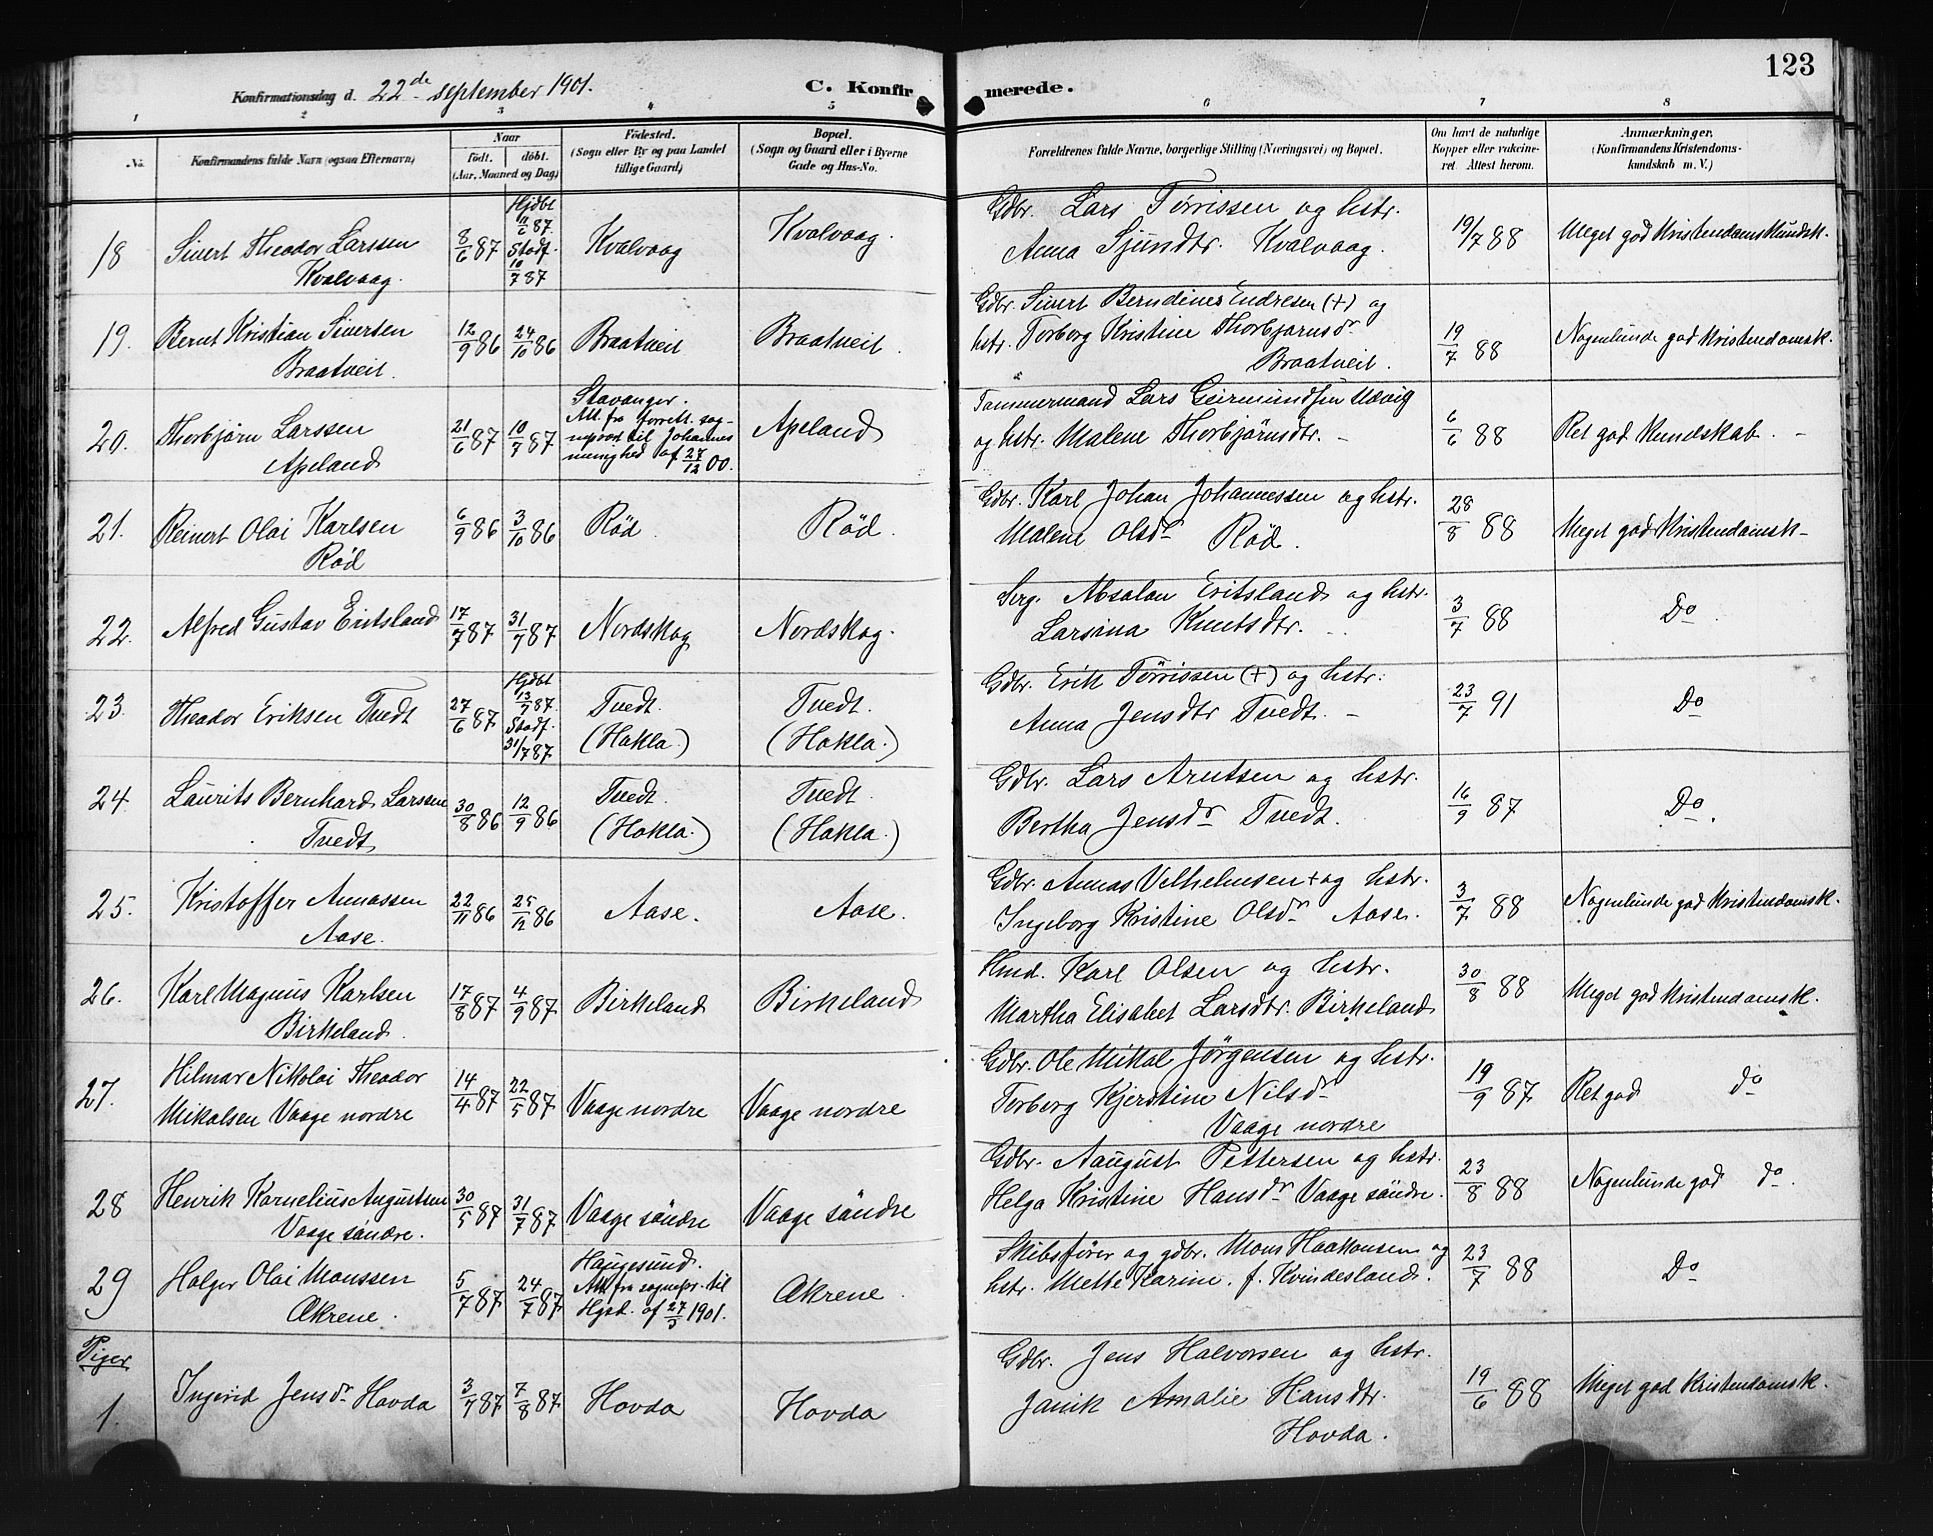 123
Konfirmationsdag d. 22de september 1901.
C. Konfirmerede.
1 2 3 4 5 6 7 8
No.
Konfirmandens fulde Navn (ogsaa Efternavn)
Naar
födt. döbt.
(Aar, Maaned og Dag)
Födested.
(Sogn eller By og paa Landet
tillige Gaard)
Bopæl.
(Sogn og Gaard eller i Byerne
Gade og Hus-No.
Forældrenes fulde Navne, borgerlige Stilling (Næringsvei) og Bopæl.
Om havt de naturlige
Kopper eller vakcine-
ret. Attest herom.
Anmærkninger.
(Konfirmandens Kristendoms-
kundskab m. V.)
18 Sivert Theodor Larssen
Kvalvaag.
8/6 87
Hjdbt
11/6 87.
Stadf.
10/7 87
Kvalvaag
Kvalvaag.
Gdbr. Lars Tørrissen og hstr.
Anna Sjundtr. Kvalvaag.
19/7 88
Meget god Kristendomskundsk.
19. Bernt Kristian Sivertsen
Braatveit.
12/9 86
24/10 86
Braatveit
Braatveit.
Gdbr. Sivert Berndines Endresen (+) og
hstr. Torborg Kristine Thorbjørnsdr
Braatveit.
19/7 88
Nogenlunde god Kristendomsk.
20. Thorbjørn Larssen
Apeland
21/6 87
10/7 87
Stavanger.
Att. fra forrett. sog-
neprest til Johannes
menighed af 27/12 00.
Apeland
Tømmermand Lars Geirmundsen Udvig
og hstr. Malene Thorbjörnsdtr. -
6/6 88
Ret god Kundskab. -
21. Reinert Olai Karlsen
Rød
6/9 86
3/10 86
Rød.
Rød.
Gdbr. Karl Johan Johannessen og hstr.
Malene Olsdr Rød.
28/8 88
Meget god Kristendomsk-
22. Alfred Gustav Eritsland
17/7 87
31/7 87
Nordskog
Nordskog.
Serg. Absalon Eritsland og hstr.
Larsina Knutsdtr.
3/7 88
Do.
23. Theodor Eriksen Tvedt
27/6 87
Hjdbt
13/7 87.
Stadf.
31/7 87
Tvedt.
(Hakla.)
Tvedt.
(Hakla.)
Gdbr. Erik Tørrissen (+) og hstr.
Anna Jensdtr Tvedt. -
23/7 91
Do
24 Laurits Bernhard Larssen
Tvedt
30/8 86
12/9 86
Tvedt.
(Hakla.)
Tvedt.
(Hakla.)
Gdbr. Lars Arntsen og hstr.
Bertha Jensdr Tvedt.
16/9 87
Do.
25. Kristoffer Annassen
Aase.
22/11 86
25/12 86
Aase.
Aase.
Gdbr. Annas Velhelmsen + og hstr.
Ingeborg Kristine Olsdr Aase.
3/7 88
Nogenlunde god Kristendomsk.
26. Karl Magnus Karlsen
Birkeland.
17/8 87
4/9 87
Birkeland
Birkeland
Hmd. Karl Olsen og hstr.
Martha Elisabet Larsdtr. Birkeland
30/8 88
Meget god Kristendomsk.
27. Hilmar Nikolai Theodor
Mikalsen Vaage nordre
14/4 87
22/5 87
Vaage nordre
Vaage nordre
Gdbr. Ole Mikal Jörgensen og hstr.
Torborg Kjerstine Nilsdr
Vaage nordre
19/9 87
Ret god do
28 Henrik Kornelius Augustsen
Vaage söndre.
30/5 87
31/7 87
Vaage söndre
Vaage söndre
Gdbr. Aaugust Pettersen og hstr.
Helga Kristine Hansdr Vaage söndre.
23/8 88
Nogenlunde god do.
29 Holger Olai Monssen
Ækrene.
5/7 87
24/7 87
Haugesund.
Att. fra sognepr. til
Hgsd. af 27/5 1901.
Ækrene.
Skibsfører og gdbr. Mons Haakonsen og
hstr. Mette Karine f. Kvindesland.
23/7 88
Do
Piger
1. Ingerid Jensdr Hovda
3/7 87
7/8 87
Hovda
Hovda
Gdbr. Jens Halvorsen og hstr.
Janik Amalie Hansdtr.
Hovda.
19/6 88
Meget god Kristendomsk.